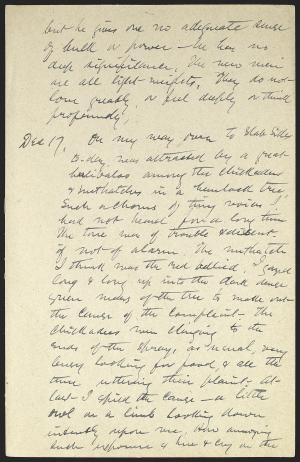 but he gives one no adequate sense
of bulk or power – he has no
deep significance. The new men
are all light-weights, They do not
love greatly, or feel deeply or think
profoundly.
Dec 17, On my way over to Slab Sides
to-day, was attracted by a great
hullabaloo among the chickadees
& nuthatches in a hemlock tree.
Such a chorus of tiny voices I
had not heard for a long time
The tone was of trouble & dissent.
if not of alarm. The nuthatch
I think was the red bellied. Gazed
long & long up into the dark dense
green mass of the tree to make out
the cause of the complaint – The
chickadees were clinging to the
ends of the sprays, as usual, very
busy looking for food, & all the
time uttering their plaint. At
last I spied the cause – a little
owl on a limb looking down
intently upon me. How annoying
such exposure & hue & cry on the